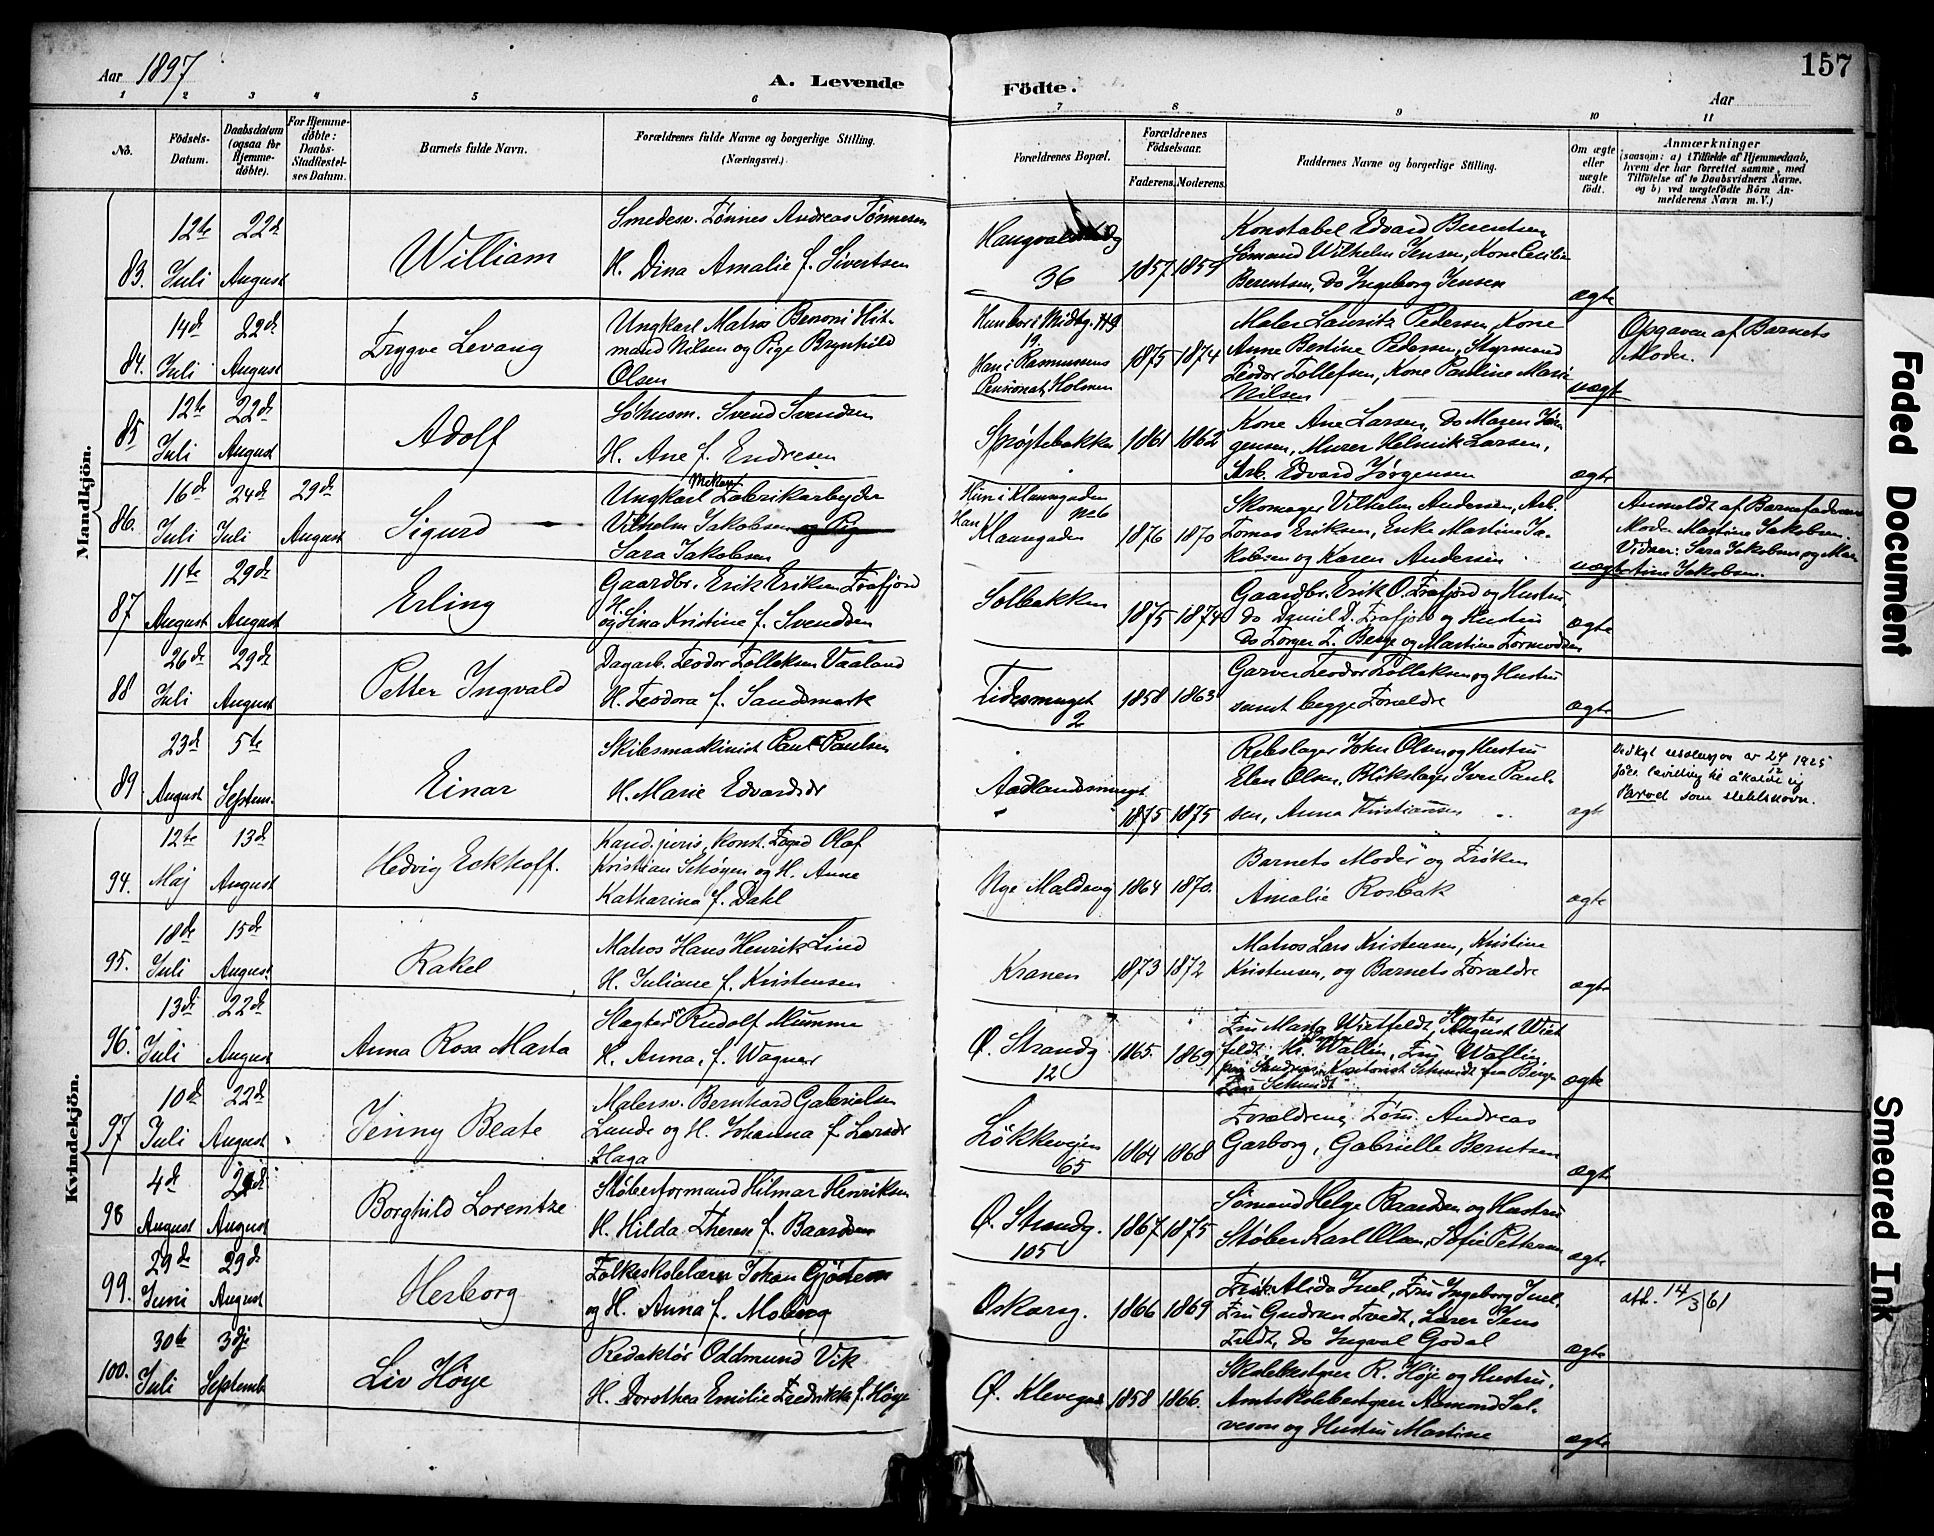 Aar 1897
A. Levende
Födte.
Aar
157
1 2 3 4 5 6 7 8 9 10 11
No.
Födsels-
Datum.
Daabsdatum
(ogsaa for
Hjemme-
döbte).
For Hjemme-
döbte:
Daabs-
Stadfæstel-
ses Datum.
Barnets fulde Navn.
Forældrenes fulde Navne og borgerlige Stilling.
(Næringsvei.)
Forældrenes Bopæl.
Forældrenes
Födselsaar.
Faderens. Moderens.
Faddernes Navne og borgerlige Stilling.
Om ægte
eller
uægte
födt.
Anmærkninger
(saasom: a) i Tilfælde af Hjemmedaab,
hvem der har forrettet samme, med
Tilföielse af to Daabsvidners Navne,
og b) ved uægtefödte Börn An-
melderens Navn m. V.)
Mandkjön.
83. 12te Juli
22d August
William
Smedesv. Tönnes Andreas Tönnesen
H. Dina Amalie f. Sivertsen
36
1857 1859
Konstabel Edvard Berentsen
Sömand Wilhelm Jensen, Kone Cecilie
Berentsen, Do Ingeborg Jensen
ægte
84. 14d Juli
22d August
Trygve Levang
Ungkarl Matros Benoni Hit-
mand Nilsen og Pige Brynhild
Olsen
Hun bor i Midtg. 49
19.
Han i Rasmussens
Pensionat, Holmen
1875 1874
Maler Lauritz Pedersen, Kone
Anne Bertine Pedersen, Styrmand
Teodor Tollefsen, Kone Pauline Marie
Nilsen
uægte
Opgaven af Barnets
Moder.
85 12te Juli
22d August
Adolf
Söhusm. Svend Svendsen
H. Ane f. Endresen
Spröjtebakken
1861 1862
Kone Ane Larsen, Do Maren Jör-
gensen, Murer Helmik Larsen,
Arb. Edvard Jörgensen
ægte
86. 16d Juli
24d Juli
29d August
Sigurd
Mekan.
Ungkarl Fabrikarbejder
Vilhelm Jakobsen og Pig
Sara Jakobsen
Hun i Klavugaden
No 6
Han
1876 1870
Skomager Vilhelm Andersen, Arb.
Tomas Eriksen, Enke Martine Ja-
kobsen og Karen Andersen
uægte
Anmeldt af Barnefaderens
Moder Martine Jakobsen.
Vidner: Sara Jakobsen og Mar-
tine Jakobsen.
87 11te August
29d August
Erling
Gaardbr. Erik Eriksen Frafjord
H.
og Lina Kristine f. Svendsen
Solbakken
1875 1874
Gaardbr. Erik O. Frafjord og Hustru
do Daniel D. Frafjord og Hustru
Do Torger T. Berge og Martine Tormodsen
ægte
88 26d Juli
29d August
Petter Ingvald
Dagarb. Teodor Tollaksen Vaaland
H. Teodora f. Sandsmark
Tidesmuget
2
1858 1863
Garver Teodor Tollaksen og Hustru
samt begge Forældre
ægte
89 23d August
5te Septem.
Einar
Skibsmaskinist Paul Paulsen
H. Marie Edvardsdr
Aadlandsmuget
1875 1875
Rebslager John Olsen og Hustru
Elen Olsen, Blikslager Iver Paul-
sen, Anna Kristiansen
ægte
Ved Kgl. resolusjon av 24/12 1925
som slektsnavn.
Kvindekjön.
94. 12te Maj
13d August
Hedvig Eckhoff.
Kand. juris, konst. Foged Olaf
Kristian Schöyen og H. Anne
Katharina f. Dahl
Nye Maldeveg
1864 1870.
Barnets Moder og Fröken
Amalie Rosbak
ægte
95. 18de Juli
15d August
Rakel
Matros Hans Henrik Lind
H. Juliane f. Kristensen
Kranen
1873 1872
Matros Lars Kristensen, Kristine
Kristensen, og Barnets Forældre
ægte
96. 13d Juli
22d August
Anna Rosa Marta
Slagter Rudolf Mumme
H. Anna, f. Wagner
Ø. Strandg.
12
1865. 1869
Fru Marta Wietfeldt, Slagter August Wiet
feldt. Kr. Wallin, Fru Wallin,
Kontorist Schmidt fra Bergen
Fru Schmidt
ægte
97 10d Juli
22d August
Jenny Beate
Malersv. Bernhard Gabrielsen
Lunde og H. Johanna f. Larsdr
Haga
Lökkevejen
65
1864 1868
Forældrene, Töm. Andreas
Garborg, Gabrielle Berntsen
ægte
98 4d August
August
Borghild Lorentze
Støberformand Hilmar Henriksen
H. Hilda Therese f. Baardsen
Ø. Strandg.
105
1867 1875
Sömand Helge Baardsen og Hustru
Støber Karl Olsen, Sofie Pettersen
ægte
99. 29d Juni
29d August
Herborg
Folkeskolelærer Johan Gjöstein
og H. Anna f. Moberg
Oskarsg.
1866 1869
Frøk Alida Juel, Fru Ingeborg Juel,
Fru Gudrun Tvedt, Lærer Jens
Tvedt, do Ingval Godal
ægte
att. 14/3 61
100. 30te Juli
3dje Septemb
Liv Höye
Redaktör Oddmund Vik
H. Dorothea Emilie Fredrikke f. Höye
Ø. Klevegad
1858 1866.
Skolebestyrer R. Höje og Hustru,
Amtsskolebestyrer Aamond Sal-
veson og Hustru Martine
ægte
Faded Document
Smeared Ink